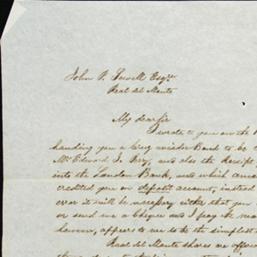 John P. Jewell Esqr.
Real del Monte
My dear Sir
I wrote to you on the
handing you a
Mr Edward J. Perry, and also the Receipt
into the London Bank, and which
credited you on deposit account, instead
over it will be necessary either that you
or send me a cheque and I pay the
however, appears to me to be the simplest
Real del Monte shares are